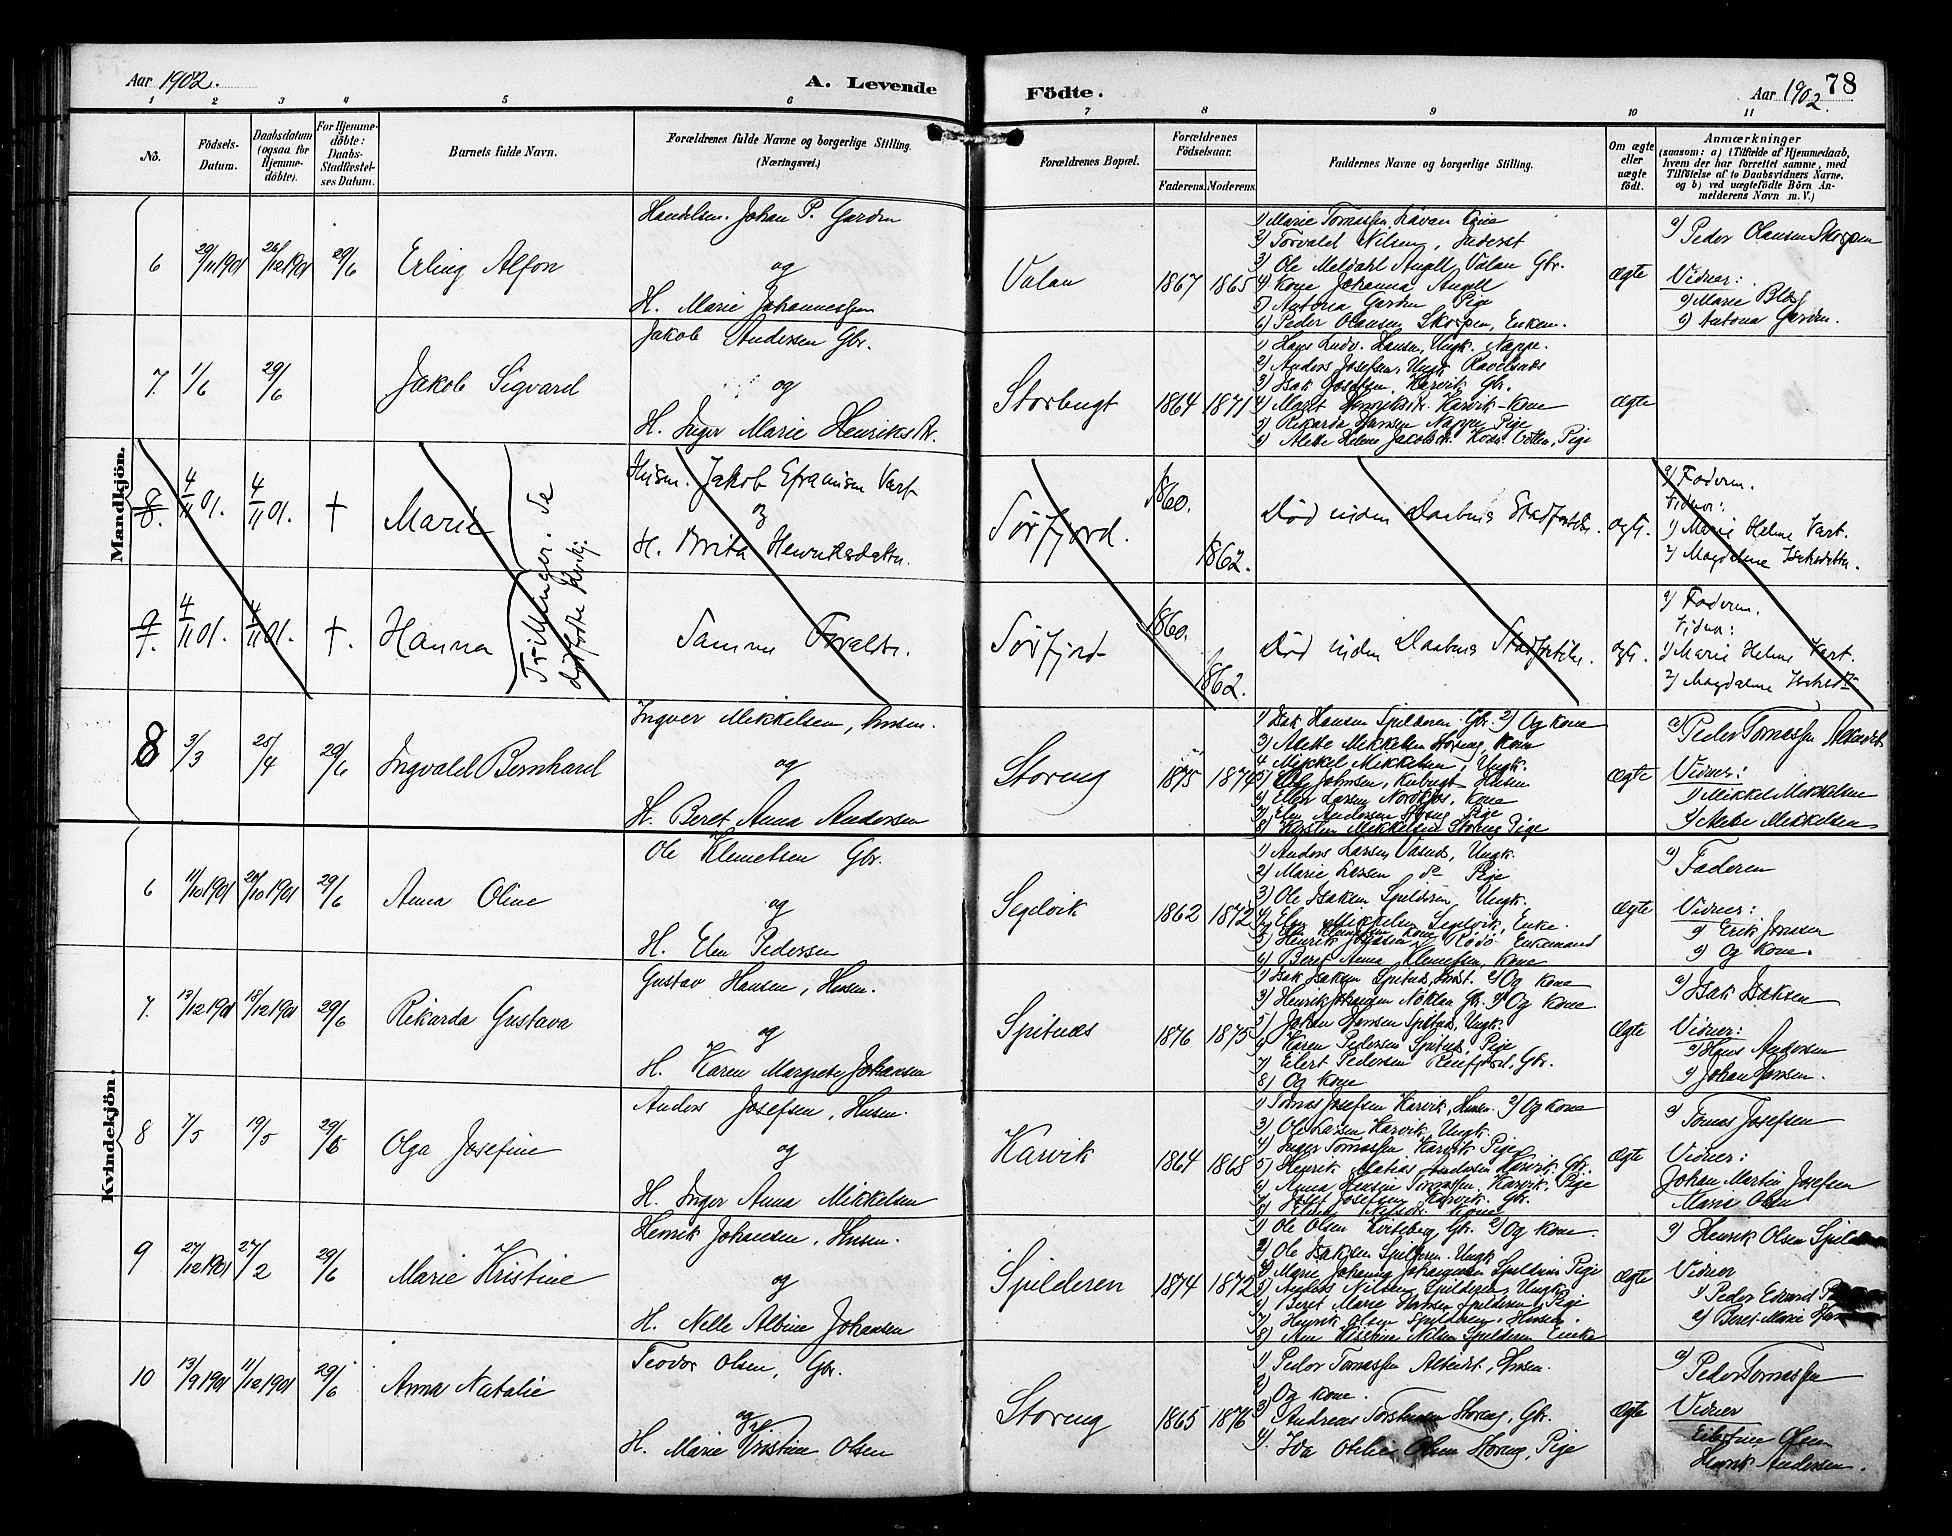 Aar 1902.
A. Levende
Födte.
Aar 1902.
78
1 2 3 4 5 6 7 8 9 10 11
No.
Födsels-
Datum.
Daabsdatum
(ogsaa for
Hjemme-
döbte).
For Hjemme-
döbte:
Daabs-
Stadfæstel-
ses Datum.
Barnets fulde Navn.
Forældrenes fulde Navne og borgerlige Stilling.
(Næringsvei.)
Forældrenes Bopæl.
Forældrenes
Födselsaar.
Faderens. Moderens.
Faddernes Navne og borgerlige Stilling.
Om ægte
eller
uægte
födt.
Anmærkninger
(saasom: a) i Tilfælde af Hjemmedaab,
hvem der har forrettet samme, med
Tilföielse af to Daabsvidners Navne,
og b) ved uægtefödte Börn An-
melderens Navn m. V.)
Mandkjön.
6 29/11 1901 26/12 1901 29/6 Erling Alfon
Handelsm. Johan P. Garden
og
H. Marie Johannessen
Valan 1867 1865
1) Marie Tomassen Lavan Pige
2) Torvald Nilsen, Inderst
3) Ole Meldahl Angell Valan Gbr.
4) Kone Johanna Angell
5) Antona Garden Pige
6) Peder Olausen Skorpen, Enkem.
Ægte
a) Peder Olausen Skorpen
Vidner:
1) Marie Blix
2) Antona Garden.
7. 1/6 29/6 Jakob Sigvard
Jakob Andersen Gbr.
og
H. Inger Marie Henriksdtr.
Storbugt 1864 1871
1) Hans Ludv. Hansen, Ungk. Nappe.
2) Anders Josefsen, Ungk. Ravelsnæs
3) Isak Josefsen, Karvik Gbr.
4) Maret Henriksdtr. Karvik - Kone
5) Rikarda Hansen Nappe, Pige
6) Alette Helene Jakobsdtr. Pige
Ægte
8. 4/11 01. 4/11 01. † Marie
Trillinger. Se
dödfödte Kvkj.
Husm. Jakob Efraimsen Vart
og
H. Brita Henriksdatter.
Sörfjord. 1860. 1862.
Död inden Daabens Stadfæstelse.
ægte.
a) Faderen.
Vidner:
1) Marie Helene Vart.
2) Magdalene Isaksdatter.
9. 4/11 01. 4/11 01. †. Hanna
Samme Forældre.
Sörfjord 1860. 1862.
Död inden Daabens Stadfæstelse.
ægte.
a) Faderen.
Vidner:
1) Marie Helene Vart.
2) Magdalene Isaksdtr.
8 3/3 25/4 29/6 Ingvald Bernhard
Ingver Mikkelsen, Husm.
og
H. Beret Anna Andersen
Storeng 1875 1874
1) Isak Hansen Spilderen Gbr. 2) Og Kone
3) Alette Mikkelsen Storeng, Kone
4 Mikkel Mikkelsen, Ungk.
5) Johnsen, Kubugt Husm
6) Ellen Larsen Nordkjos, Kone
7) Elen Andersen Storeng Pige
8) Kirsten Mikkelsen Storeng Pige
Ægte
a) Peder Tomassen Alteidet
Vidner:
1) Mikkel Mikkelsen
2) Alette Mikkelsen
Kvindekjön.
6 11/10 1901 20/10 1901 29/6 Anna Oline
Ole Klemetsen Gbr.
og
H. Elen Pedersen
Segelvik 1862 1872
1) Anders Larsen Vasnes, Ungk.
2) Marie Larsen do Pige
3) Ole Isaksen Spilderen, Ungk.
4) Elen Mikkelsen Segelvik, Enke.
5) Henrik Rödö Enkemand
6) Beret Anna Klemetsen, Kone
Ægte
a) Faderen
Vidner:
1) Erik Jonssen
2) Og Kone.
7. 13/12 1901 18/12 1901 29/6 Rikarda Gustava
Gustav Hansen, Husm.
og
H. Karen Margrete Johansen
Spitnæs 1876 1875
1) Isak Isaksen Spitnes, Inst. 2) Og Kone
3) Henrik Johansen Nöklan Gbr. 4) Og Kone
5) Johan Hansen Spitnes, Ungk.
6) Karen Pedersen Spitnes, Pige
7) Eilert Pedersen Reinfjord, Gbr.
8) Og Kone
Ægte
a) Isak Isaksen
Vidner:
1) Hans Andersen
2) Johan Hansen.
8 7/5 19/5 29/6 Olga Josefine
Anders Josefsen, Husm.
og
H. Inger Anna Mikkelsen
Karvik 1864 1868
1) Tomas Josefsen Karvik, Husm. 2) Og Kone
3) Ole Larsen Karvik, Ungk.
4) Inger Tomassen Karvik Pige
5) Henrik Matias Andersen Karvik Gbr.
6) Anna Hansine Tomassen Karvik, Pige
7) Josef Josefsen Karvik Gbr.
8) Elen Nilsdtr. Kone
Ægte
a) Tomas Josefsen
Vidner:
Johan Martin Josefsen
Marie Olsen
9 27/12 1901 27/2 29/6 Marie Kristine
Henrik Johansen, Husm.
og
H. Nelle Albine Johansen
Spilderen 1874 1872
1) Ole Olsen Kvitberg, Gbr. 2) Og Kone.
3) Ole Isaksen Spilderen, Ungk.
4) Marie Johannesen Spilderen Pige
5) Anders Nilsen Spilderen, Ungk.
6) Beret Marie Hansen Spilderen, Pige
7) Henrik Olsen Spilderen, Husm.
8) Ane Kristine Nilsen Spilderen Enke
Ægte
a) Henrik Olsen Spild
Vidner
1) Peder Edvard P
2) Beret Marie Han
10 13/9 1901 11/12 1901 29/6 Anna Natalie
Teodor Olsen, Gbr.
og
H. Marie Kristine Olsen
Storeng 1865 1876
1) Peder Tomassen Alteidet, Husm.
2) Og Kone.
3) Andreas Torstensen Storeng, Gbr.
4) Ida Otelie Olsen Storeng, Pige
Ægte
a) Peder Tomassen
Vidner
Eilertine Olsen
Henrik Andersen.